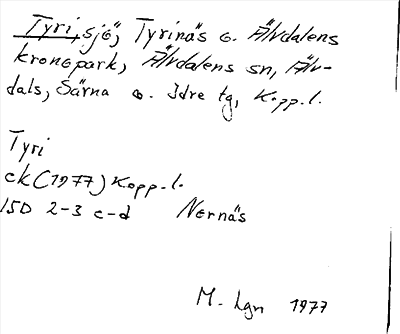 Tyri, sjö, Tyrinäs o. Älvdalens
kronopark, Älvdalens sn, Älv-
dals, Särna o. Idre tg, Kopp. l.
Tyri
ek (1977) Kopp. l.
15D 2-3 c-d Nornäs
M. Lgn 1977